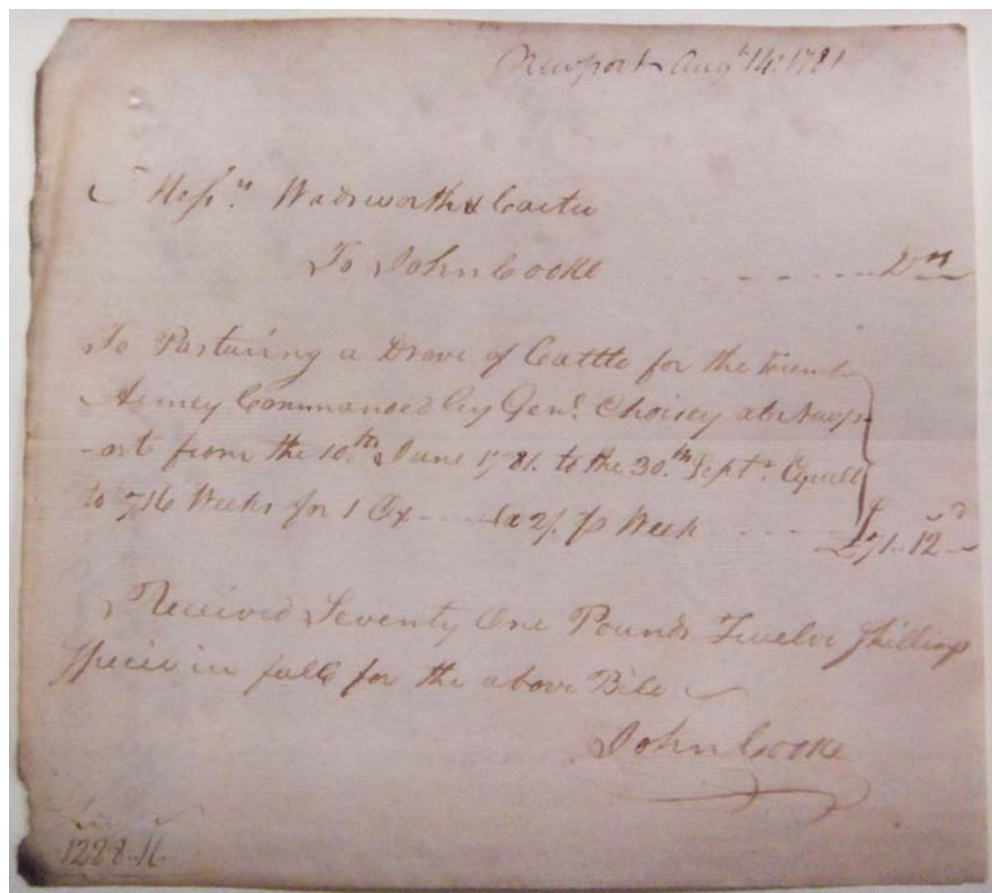 Newport Augt 14th 1781
Messrs Wadsworth & Carter
To John Cooke - - - - - - Drs
To Pasturing a Drove of Cattle for the French
Armey Commanded by Genl. Choisey at Newp-
-ort from the 10th June 1781. to the 30.th Septr. Equill
to 716 Weeks for 1 Ox - - - - @ 2/. p Week - - - - £71..12
Received Seventy One Pounds Twelve Shillings
Specie in full for the above Bill
John Cooke
1228..16